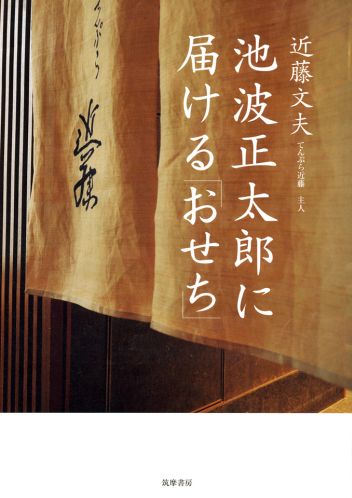 近藤文夫
てんぷら近藤 主人
池波正太郎に
届ける「おせち」
てんぷら
近藤
筑摩書房